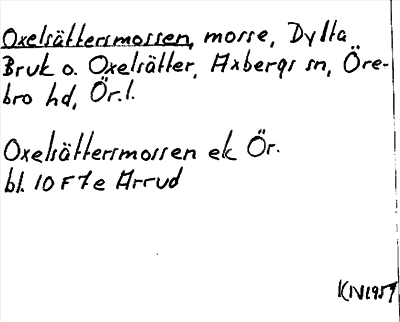 Oxelsättersmossen, mosse, Dylta
Bruk o. Oxelsätter, Axbergs sn, Öre-
bro hd, Ör.l.
Oxelsättersmossen ek Ör.
bl. 10 F 7 e Arrud
KN1957